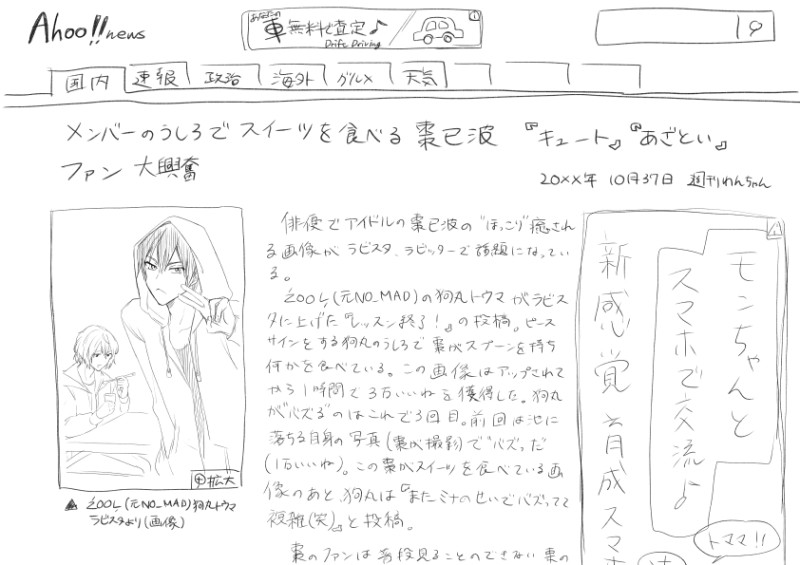 Ahoo!!news
あなたの
車無料で査定♪
Drift Driving
国内
速報
政治
海外
グルメ
天気
メンバーのうしろでスイーツを食べる棗巳波 『キュート』『あざとい』
ファン大興奮
20××年 10月37日 週刊わんちゃん
俳優でアイドルの棗巳波の"ほっこり"癒され
る画像がラビスタ、ラビッターで話題になってい
る。
ŹOOĻ(元NO_MAD)の狗丸トウマがラビス
タに上げた『レッスン終了!』の投稿。ピース
サインをする狗丸のうしろで棗がスプーンを持ち
何かを食べている。この画像はアップされて
から1時間で3万いいねを獲得した。狗丸
が"バズる"のはこれで3回目。前回は池に
落ちる自身の写真(棗が撮影)で"バズった"
(1万いいね)。この棗がスイーツを食べている画
像のあと、狗丸は『またミナのせいでバズってて
複雑(笑)』と投稿。
棗のファンは普段見ることのできない棗の
拡大
▲ ŹOOĻ(元NO_MAD)狗丸トウマ
ラビスタより(画像)
モンちゃんと
スマホで交流♪
新感覚育成スマホ
トママ!!